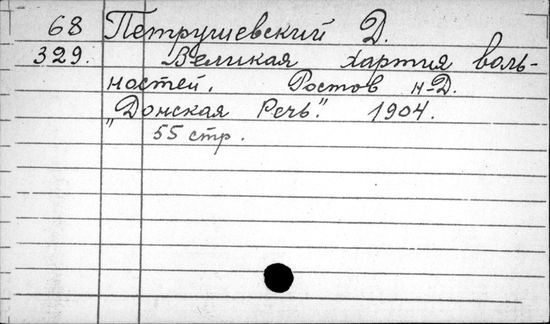 68 Петрушевский Д.
329. Великая хартия воль-
ностей. Ростов н-Д.
"Донская Речь". 1904.
55 стр.